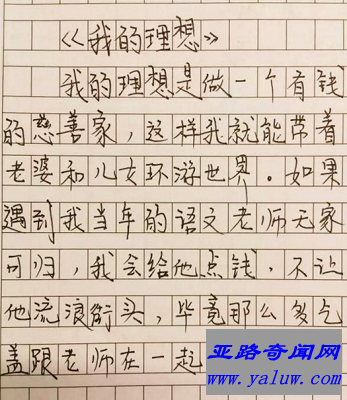 《我的理想》
我的理想是做一个有钱
的慈善家，这样我就能带着
老婆和儿女环游世界。如果
遇到我当年的语文老师无家
可归，我会给他点钱，不让
他流浪街头，毕竟那么多乞
盖跟老师在一起
亚路奇闻网
www.yaluw.com